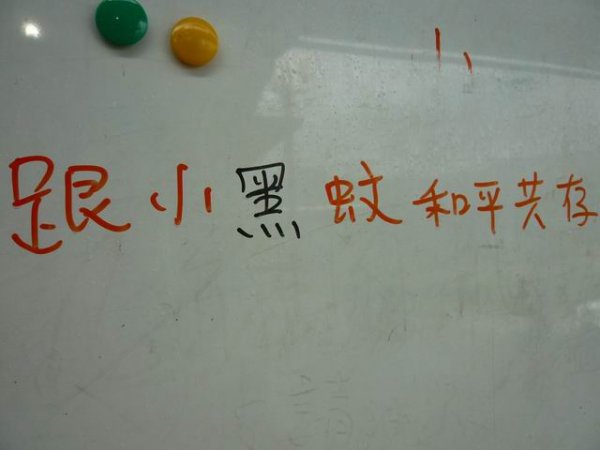 跟小黑蚊和平共存